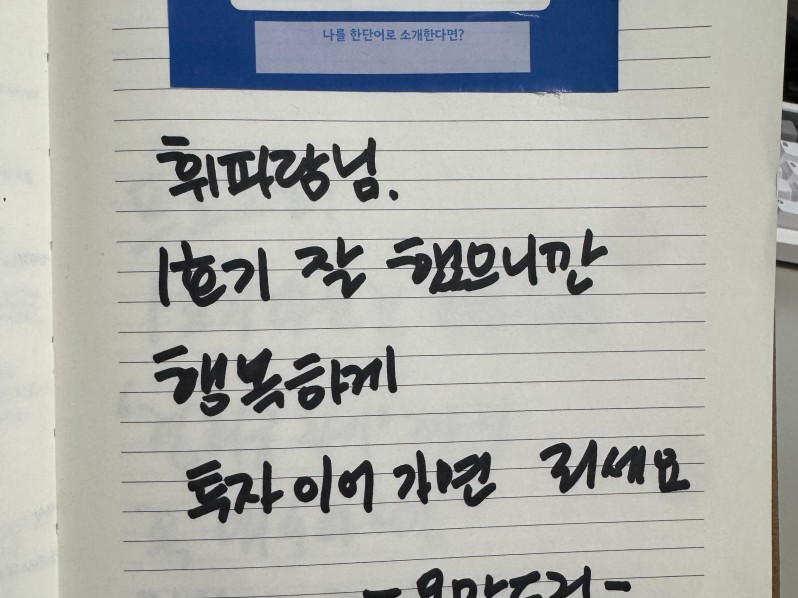 나를 한단어로 소개한다면?
휘파랑님.
1호기 잘 했으니깐
행복하게
투자 이어 가면 되세요